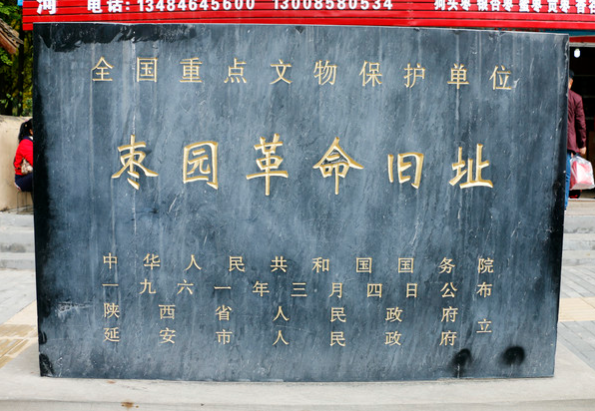 河 电话: 13484645600 13008580534
狗头枣 银杏枣 蜜枣 贡枣 香
全国重点文物保护单位
枣园革命旧址
中华人民共和国国务院
一九六一年三月四日公布
陕西省人民政府
延安市人民政府 立